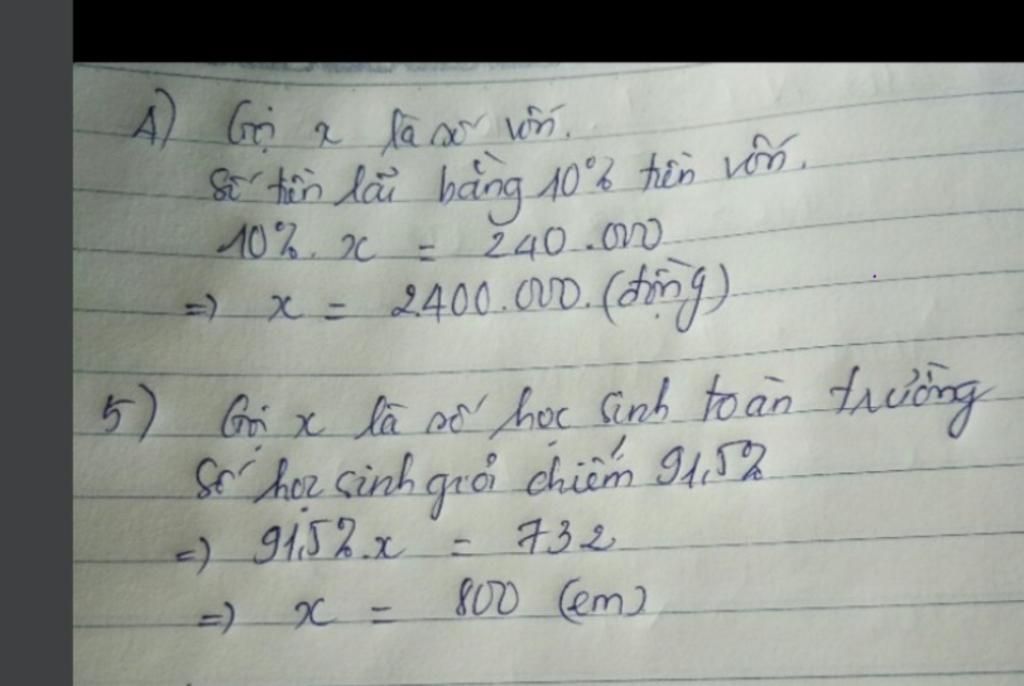 4) Gọi x là số vốn.
Số tiền lãi bằng 10% tiền vốn.
10%. x = 240.000
=> x = 2400.000. (đồng)
5) Gọi x là số học sinh toàn trường
Số học sinh giỏi chiếm 91,5%
=> 91,5%.x = 732
=> x = 800 (em)